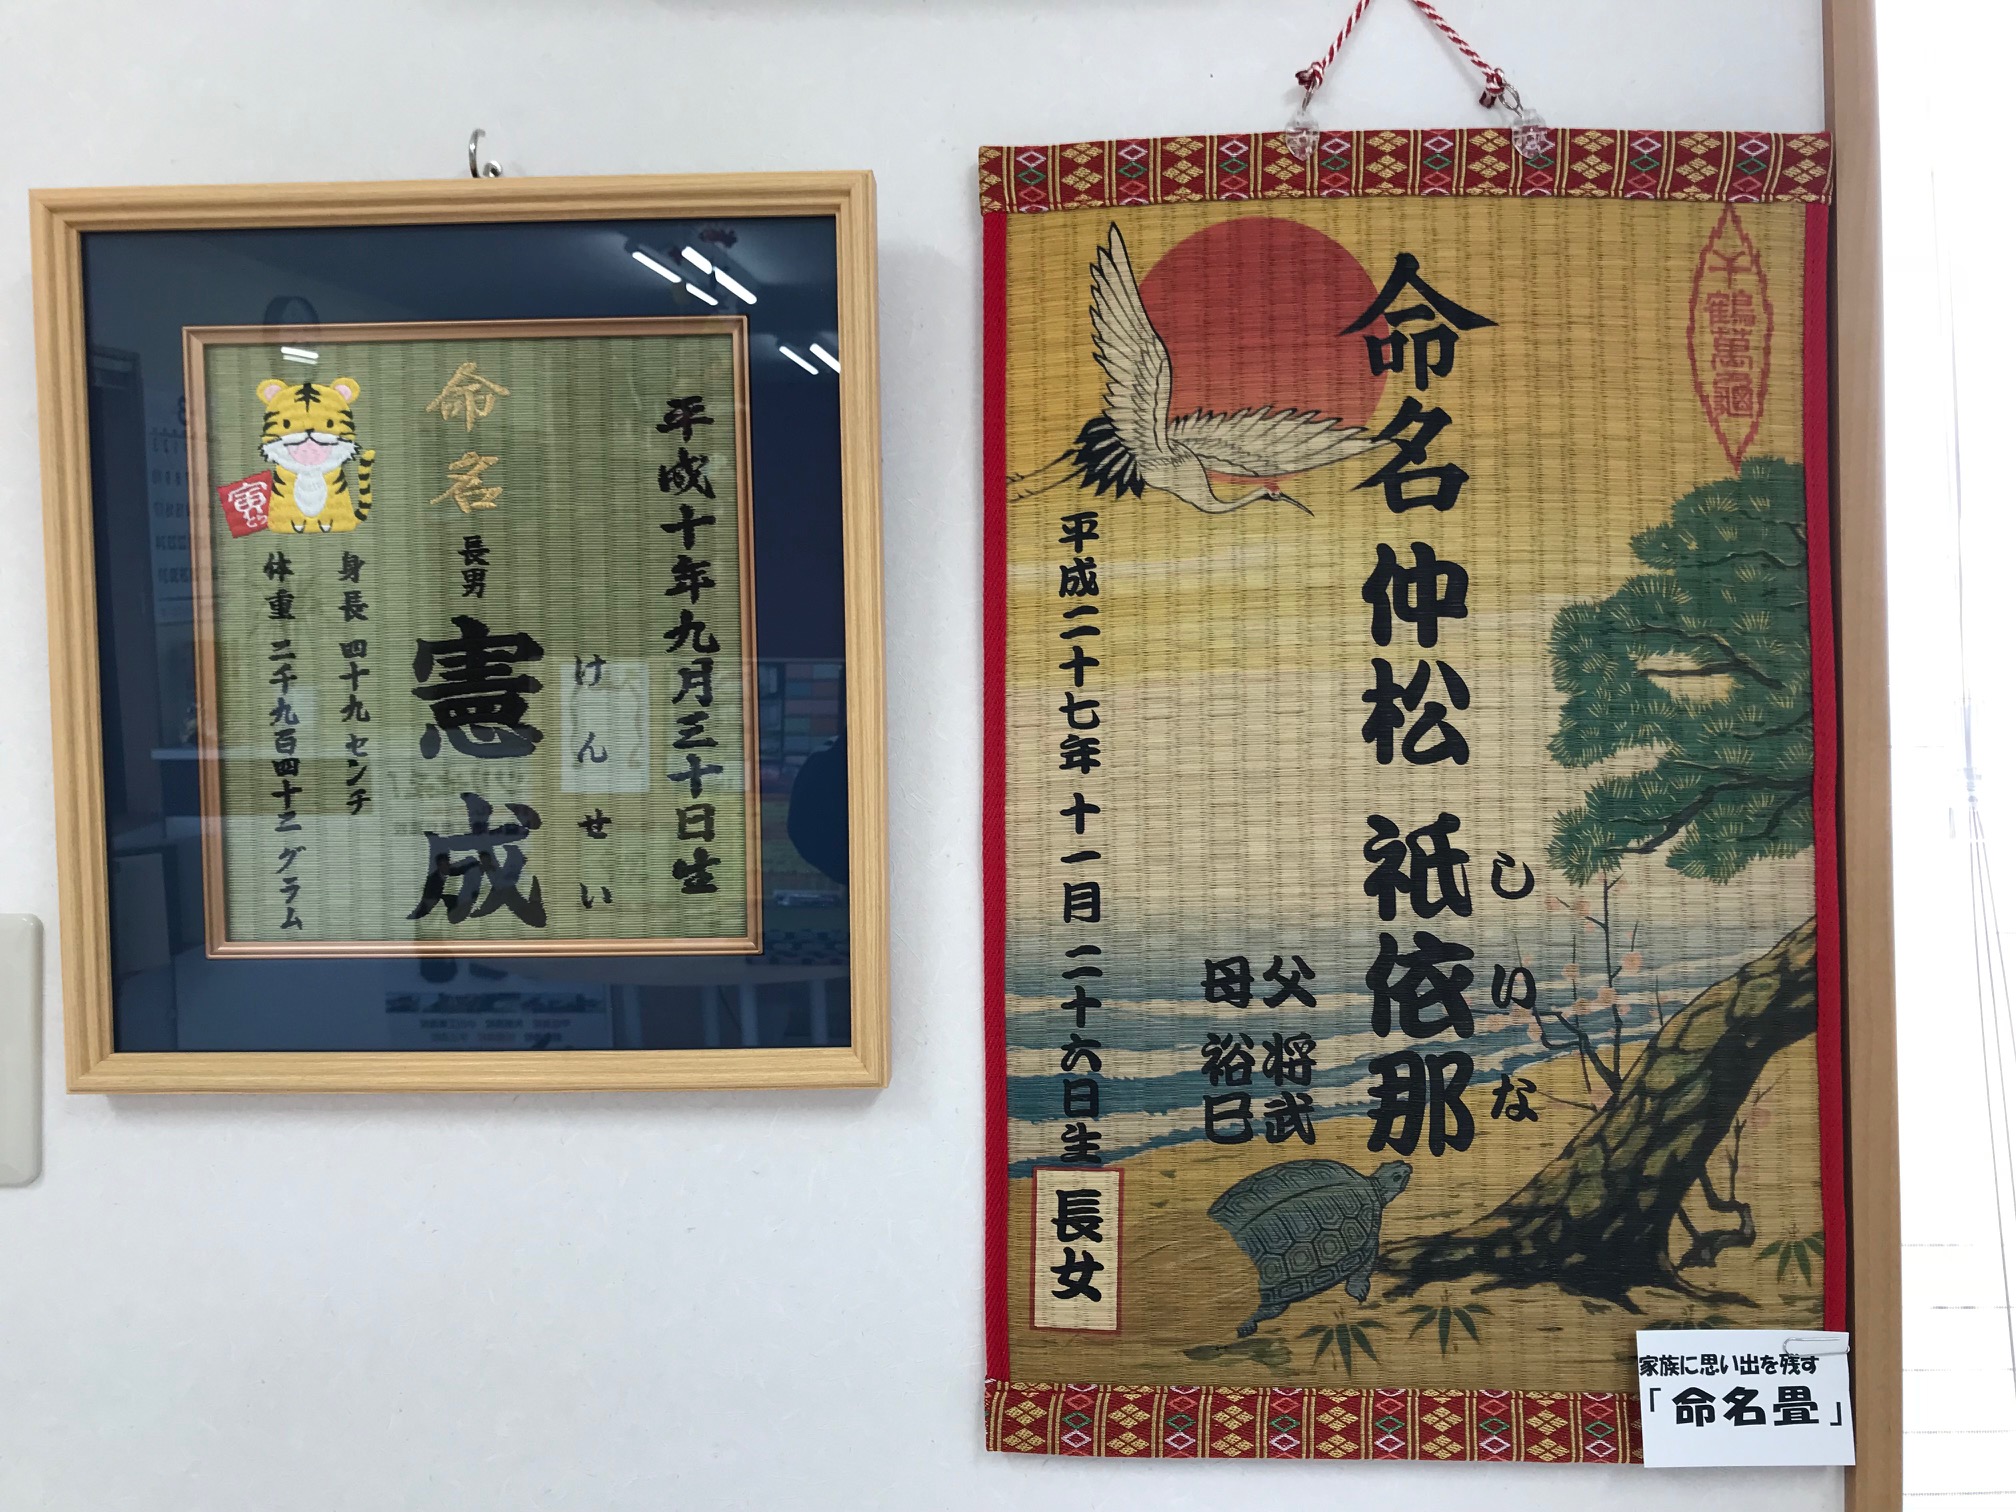 平成十年九月三十日生
けんせい
命名 長男 憲成
身長 四十九センチ
体重 二千九百四十二グラム
寅
とら
千鶴萬龜
しいな
命名 仲松 祇依那
父 将武
母 裕巳
平成二十七年十一月二十六日生
長女
家族に思い出を残す
「命名畳」